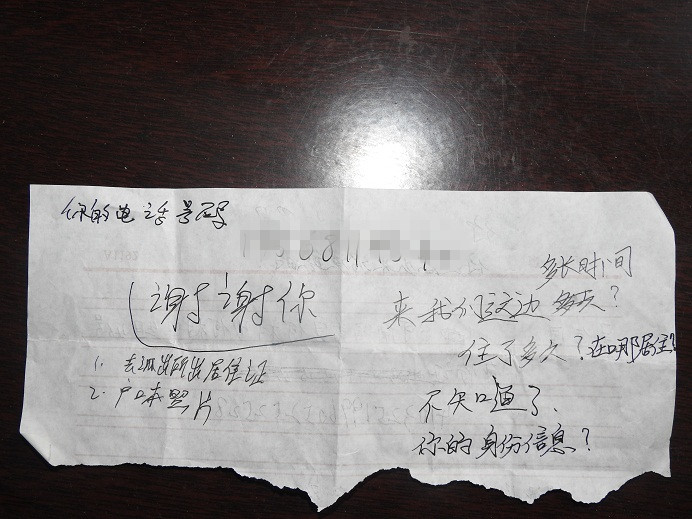 你的电话号码
谢谢你
1. 去派出所出居住证
2. 户口本照片
多长时间
来我们这边
住了多久？在哪居住？
不知道了.
你的身份信息？